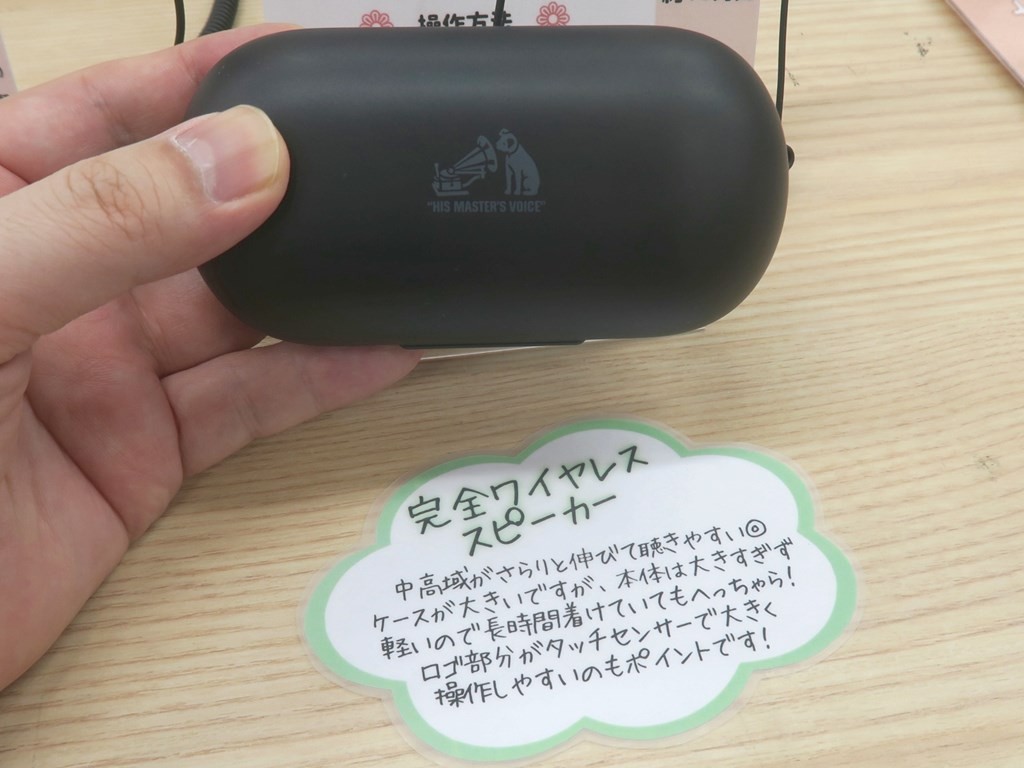 操作方法
"HIS MASTER'S VOICE"
完全ワイヤレス
スピーカー
中高域がさらりと伸びて聴きやすい◎
ケースが大きいですが、本体は大きすぎず
軽いので長時間着けていてもへっちゃら!
ロゴ部分がタッチセンサーで大きく
操作しやすいのもポイントです!